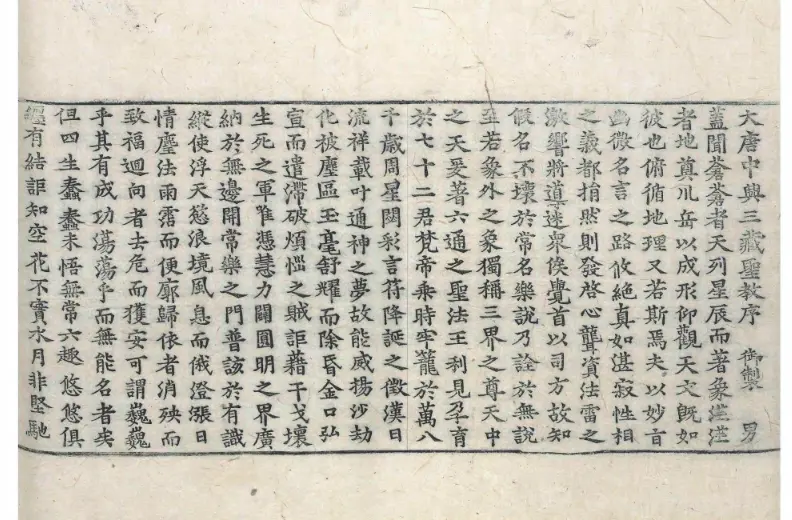 大唐中興三藏聖教序 御製 男
蓋聞蒼蒼者天列星辰而著象茫茫
者地奠川岳以成形仰觀天文既如
彼也俯循地理又若斯焉夫以妙旨
幽微名言之路攸絶真如湛寂性相
之義都捐然則發啓心聾資法雷之
激響將導迷衆俟覺首以司方故知
假名不壞於常名樂説乃詮於無説
至若象外之象獨稱三界之尊天中
之天爰著六通之聖法王利見孕育
於七十二君梵帝乘時牢籠於萬八
千歲周星閟彩言符降誕之徵漢日
流祥載叶通神之夢故能威揚沙劫
化被塵區玉毫舒耀而除昏金口弘
宣而遣滯破煩惱之賊詎藉干戈壞
生死之軍惟憑慧力闢圓明之界廣
納於無邊開常樂之門普該於有識
縱使浮天慾浪境風息而俄澄漲日
情塵法雨霑而便廓歸依者消殃而
致福迴向者去危而獲安可謂巍巍
乎其有成功蕩蕩乎而無能名者矣
但四生蠢蠢未悟無常六趣悠悠俱
纏有結詎知空花不實水月非堅馳